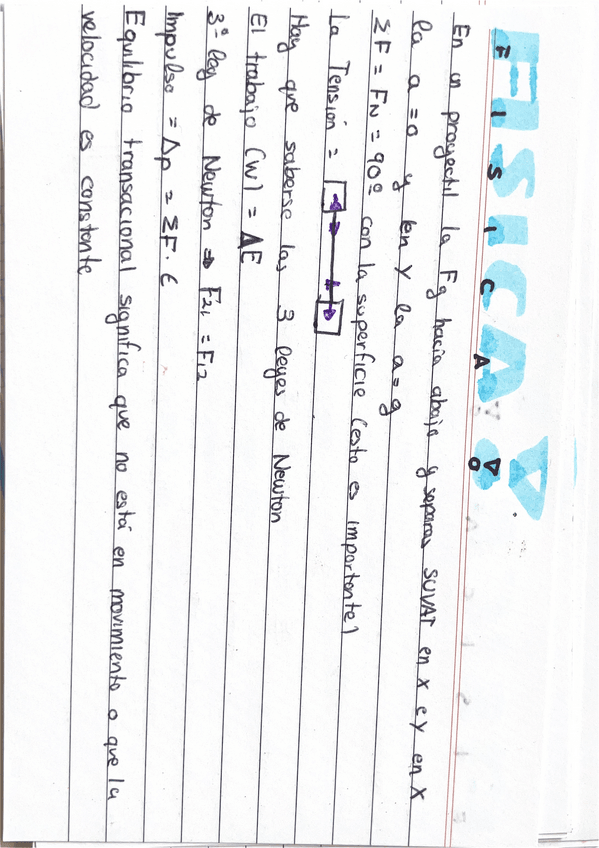 FISICA
FISICA
En un proyectil la Fg hacia abajo y separas SUVAT en x e y en x
la a=0 y en y la a=g
ΣF = FN = 90º con la superficie (esto es importante)
La Tensión =
Hay que saberse las 3 leyes de Newton
El trabajo (W) = ΔE
3ª ley de Newton ⇒ F21 = F12
Impulso = Δp = ΣF · t
Equilibrio transacional significa que no está en movimiento o que la
velocidad es constante